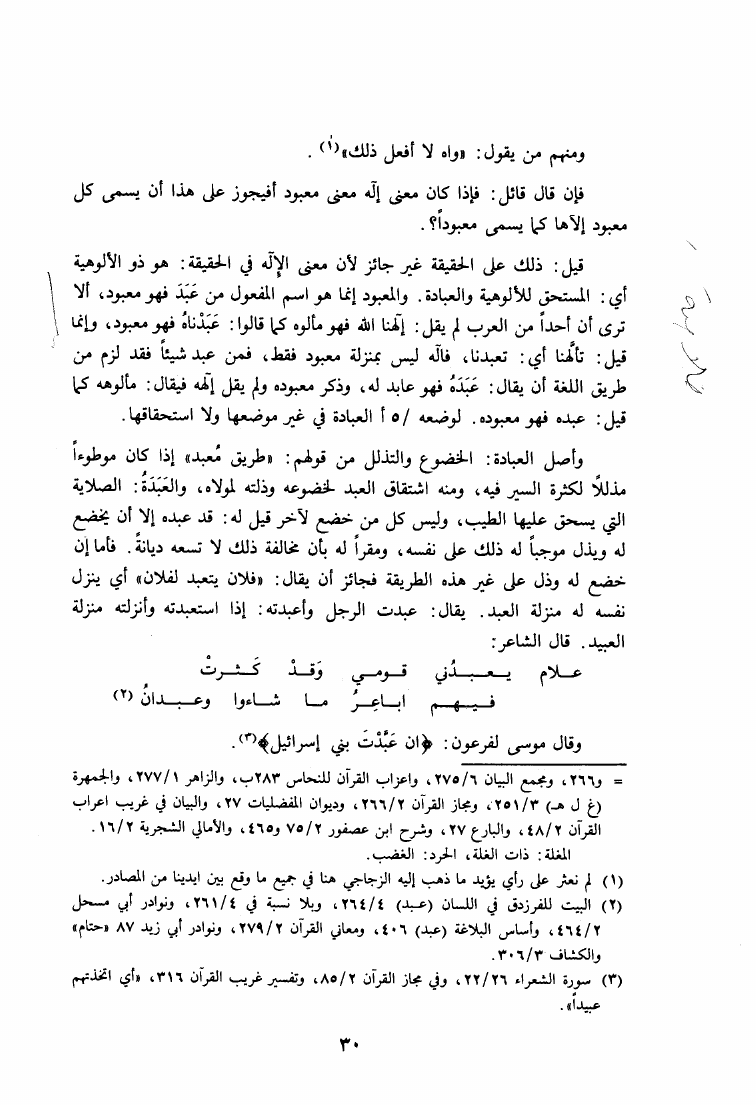 ومنهم من يقول: «واه لا أفعل ذلك»(١).
فإن قال قائل: فإذا كان معنى إلٰه معنى معبود أفيجوز على هذا أن يسمى كل
معبود إلآها كما يسمى معبوداً؟.
قيل: ذلك على الحقيقة غير جائز لأن معنى الإلٰه في الحقيقة: هو ذو الألوهية
أي: المستحق للألوهية والعبادة. والمعبود إنما هو اسم المفعول من عَبَدَ فهو معبود، ألا
ترى أن أحداً من العرب لم يقل: إلٰهنا الله فهو مألوه كما قالوا: عَبَدْناهُ فهو معبود، وإنما
قيل: تألّهنا أي: تعبدنا، فآله ليس بمنزلة معبود فقط، فمن عبد شيئاً فقد لزم من
طريق اللغة أن يقال: عَبَدَهُ فهو عابد له، وذكر معبوده ولم يقل إلٰهه فيقال: مألوهه كما
قيل: عبده فهو معبوده. لوضعه /٥ أ العبادة في غير موضعها ولا استحقاقها.
وأصل العبادة: الخضوع والتذلل من قولهم: «طريق مُعبد» إذا كان موطوءاً
مذللاً لكثرة السير فيه، ومنه اشتقاق العبد لخضوعه وذلته لمولاه، والعَبَدَةُ: الصلاية
التي يسحق عليها الطيب، وليس كل من خضع لآخر قيل له: قد عبده إلا أن يخضع
له ويذل موجباً له ذلك على نفسه، ومقراً له بأن مخالفة ذلك لا تسعه ديانةً. فأما إن
خضع له وذل على غير هذه الطريقة فجائز أن يقال: «فلان يتعبد لفلان» أي ينزل
نفسه له منزلة العبد. يقال: عبدت الرجل وأعبدته: إذا استعبدته وأنزلته منزلة
العبيد. قال الشاعر:
علام يعبدُني قومي وَقدْ كَثرتْ
فيهم اباعِرُ ما شاءوا وعبدانُ (٢)
وقال موسى لفرعون: ﴿ان عَبَّدْتَ بني إسرائيل﴾(٣).
= و٢٦٦، ومجمع البيان ٢٧٥/٦، واعراب القرآن للنحاس ٢٨٣ب، والزاهر ٢٧٧/١، والجمهرة
(غ ل هـ) ٢٥١/٣، ومجاز القرآن ٢٦٦/٢، وديوان المفضليات ٢٧، والبيان في غريب اعراب
القرآن ٤٨/٢، والبارع ٢٧، وشرح ابن عصفور ٧٥/٢ و٤٦٥، والأمالي الشجرية ١٦/٢.
المغلة: ذات الغلة، الحرد: الغضب.
(١) لم نعثر على رأي يؤيد ما ذهب إليه الزجاجي هنا في جميع ما وقع بين ايدينا من المصادر.
(٢) البيت للفرزدق في اللسان (عبد) ٢٦٤/٤، وبلا نسبة في ٢٦١/٤، ونوادر أبي مسحل
٤٦٤/٢، وأساس البلاغة (عبد) ٤٠٦، ومعاني القرآن ٢٧٩/٢، ونوادر أبي زيد ٨٧ «حتام»
والكشاف ٣٠٦/٣.
(٣) سورة الشعراء ٢٢/٢٦، وفي مجاز القرآن ٨٥/٢، وتفسير غريب القرآن ٣١٦، «أي اتخذتهم
عبيداً».
٣٠